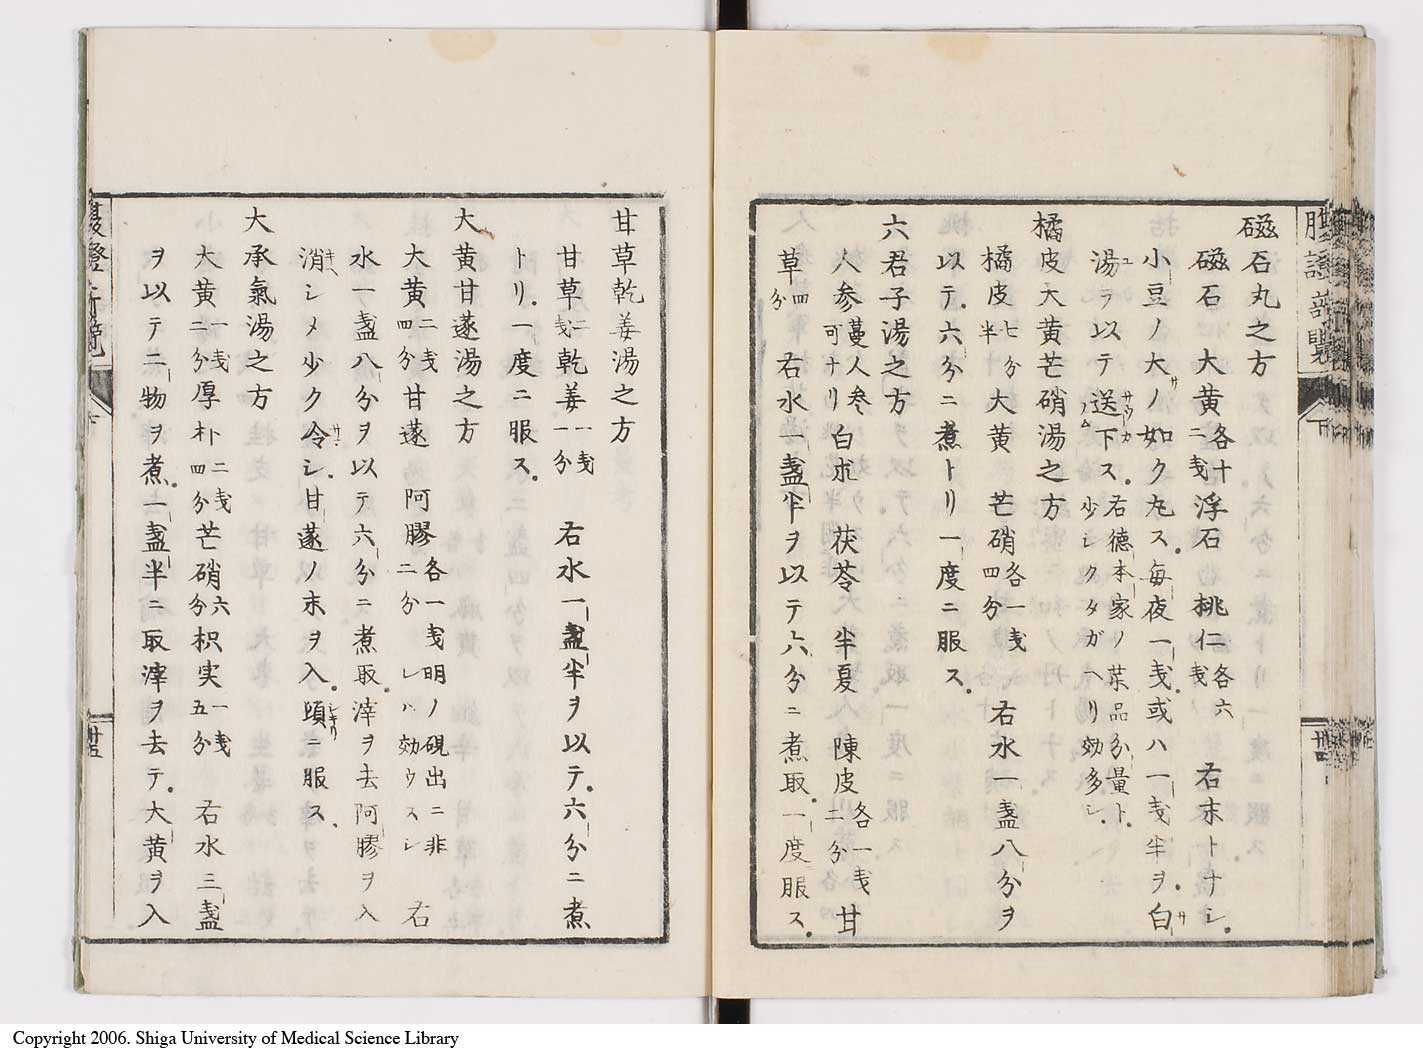 腹證韵覽
下
廿四
磁石丸之方
磁石 大黄各十二戔浮石 桃仁各六戔 右末トナシ。
小豆ノ大サノ如ク丸ス。毎夜一戔。或ハ一戔半ヲ。白サ
湯ユヲ以テ送下サウカノムス。右德本家ノ菜品分量ト。少シクタガヘリ効多シ。
橘皮大黄芒硝湯之方
橘皮七分半 大黄 芒硝各一戔四分 右水一盞八分ヲ
以テ。六分ニ煮トリ一度ニ服ス。
六君子湯之方
人参蔓人参可ナリ 白朮 茯苓 半夏 陳皮各一戔二分 甘
草四分 右水一盞半ヲ以テ六分ニ煮取。一度服ス。
甘草乾姜湯之方
甘草二戔乾姜一戔一分 右水一盞半ヲ以テ。六分ニ煮
トリ。一度ニ服ス。
大黄甘遂湯之方
大黄二戔四分 甘遂 阿膠各一戔二分 明ノ硯出ニ非レハ効ウスシ 右
水一盞八分ヲ以テ六分ニ煮取。滓ヲ去阿膠ヲ入
消キヘシメ少ク令サマシ。甘遂ノ末ヲ入。頓シキリニ服ス、
大承氣湯之方
大黄一戔二分厚朴二戔四分芒硝六分枳実一戔五分 右水三盞
ヲ以テ二物ヲ煮。一盞半ニ取滓ヲ去テ。大黄ヲ入
廿五
Copyright 2006. Shiga University of Medical Science Library